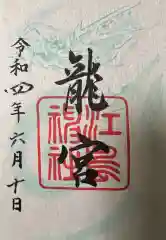 龍宮
江島神社
令和四年六月十日